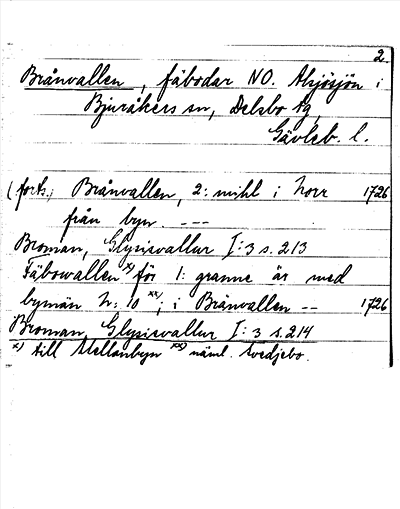 2.
Brånvallen, fäbodar NO. Alsjösjön i
Bjuråkers sn, Delsbo tg,
Gävleb. l.
(forts.) Brånvallen, 2: mihl i Norr 1726
från byn. ---
Broman, Glysisvallur I:3 s. 213
Fäbowallen x) för 1: granne är med
bymän N: 10 xx); i Brånvallen -- 1726
Broman, Glysisvallur I:3 s. 214
x) till Mellanbyn xx) näml. Svedjebo.